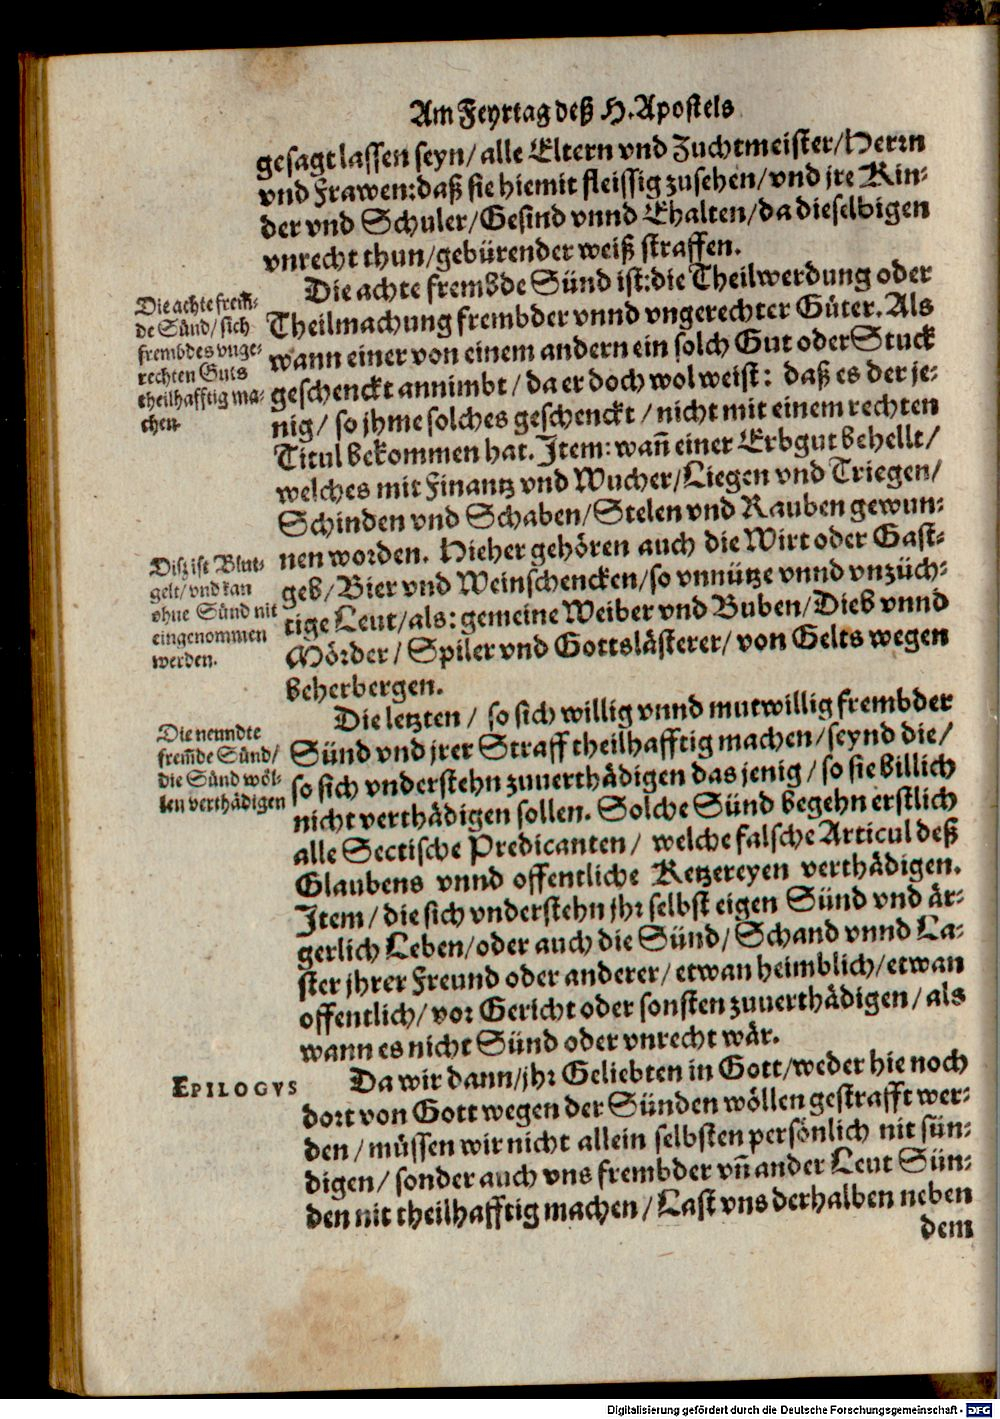 Am Feyrtag deß H. Apostels
gesagt lassen seyn/ alle Eltern vnd Zuchtmeister/ Herrn
vnd Frawen: daß sie hiemit fleissig zusehen/ vnd jre Kin-
der vnd Schuler/ Gesind vnnd Ehalten/ da dieselbigen
vnrecht thun/ gebürender weiß straffen.
Die achte frem̃-
de Sünd/ sich
frembdes vnge-
rechten Guts
theilhafftig ma-
chen.
Die achte frembde Sünd ist: die Theilwerdung oder
Theilmachung frembder vnnd vngerechter Güter. Als
wann einer von einem andern ein solch Gut oder Stuck
geschenckt annimbt/ da er doch wol weist: daß es der je-
nig/ so jhme solches geschenckt/ nicht mit einem rechten
Titul bekommen hat. Item: wañ einer Erbgut behellt/
welches mit Finantz vnd Wucher/ Liegen vnd Triegen/
Schinden vnd Schaben/ Stelen vnd Rauben gewun-
nen worden. Hieher gehören auch die Wirt oder Gast-
geb/ Bier vnd Weinschencken/ so vnnütze vnnd vnzüch-
tige Leut/ als: gemeine Weiber vnd Buben/ Dieb vnnd
Mörder/ Spiler vnd Gottslästerer/ von Gelts wegen
beherbergen.
Diß ist Blut-
gelt/ vnd kan
ohne Sünd nit
eingenommen
werden.
Die neundte
frem̃de Sünd/
die Sünd wöl-
len verthädigen
Die letzten/ so sich willig vnnd mutwillig frembder
Sünd vnd jrer Straff theilhafftig machen/ seynd die/
so sich vnderstehn zuuerthädigen das jenig/ so sie billich
nicht verthädigen sollen. Solche Sünd begehn erstlich
alle Sectische Predicanten/ welche falsche Articul deß
Glaubens vnnd offentliche Ketzereyen verthädigen.
Item/ die sich vnderstehn jhr selbst eigen Sünd vnd är-
gerlich Leben/ oder auch die Sünd/ Schand vnnd La-
ster jhrer Freund oder anderer/ etwan heimblich/ etwan
offentlich/ vor Gericht oder sonsten zuuerthädigen/ als
wann es nicht Sünd oder vnrecht wär.
EPILOGVS
Da wir dann/ jhr Geliebten in Gott/ weder hie noch
dort von Gott wegen der Sünden wöllen gestrafft wer-
den/ müssen wir nicht allein selbsten persönlich nit sün-
digen/ sonder auch vns frembder vñ ander Leut Sün-
den nit theilhafftig machen/ Last vns derhalben neben
dem
Digitalisierung gefördert durch die Deutsche Forschungsgemeinschaft - DFG